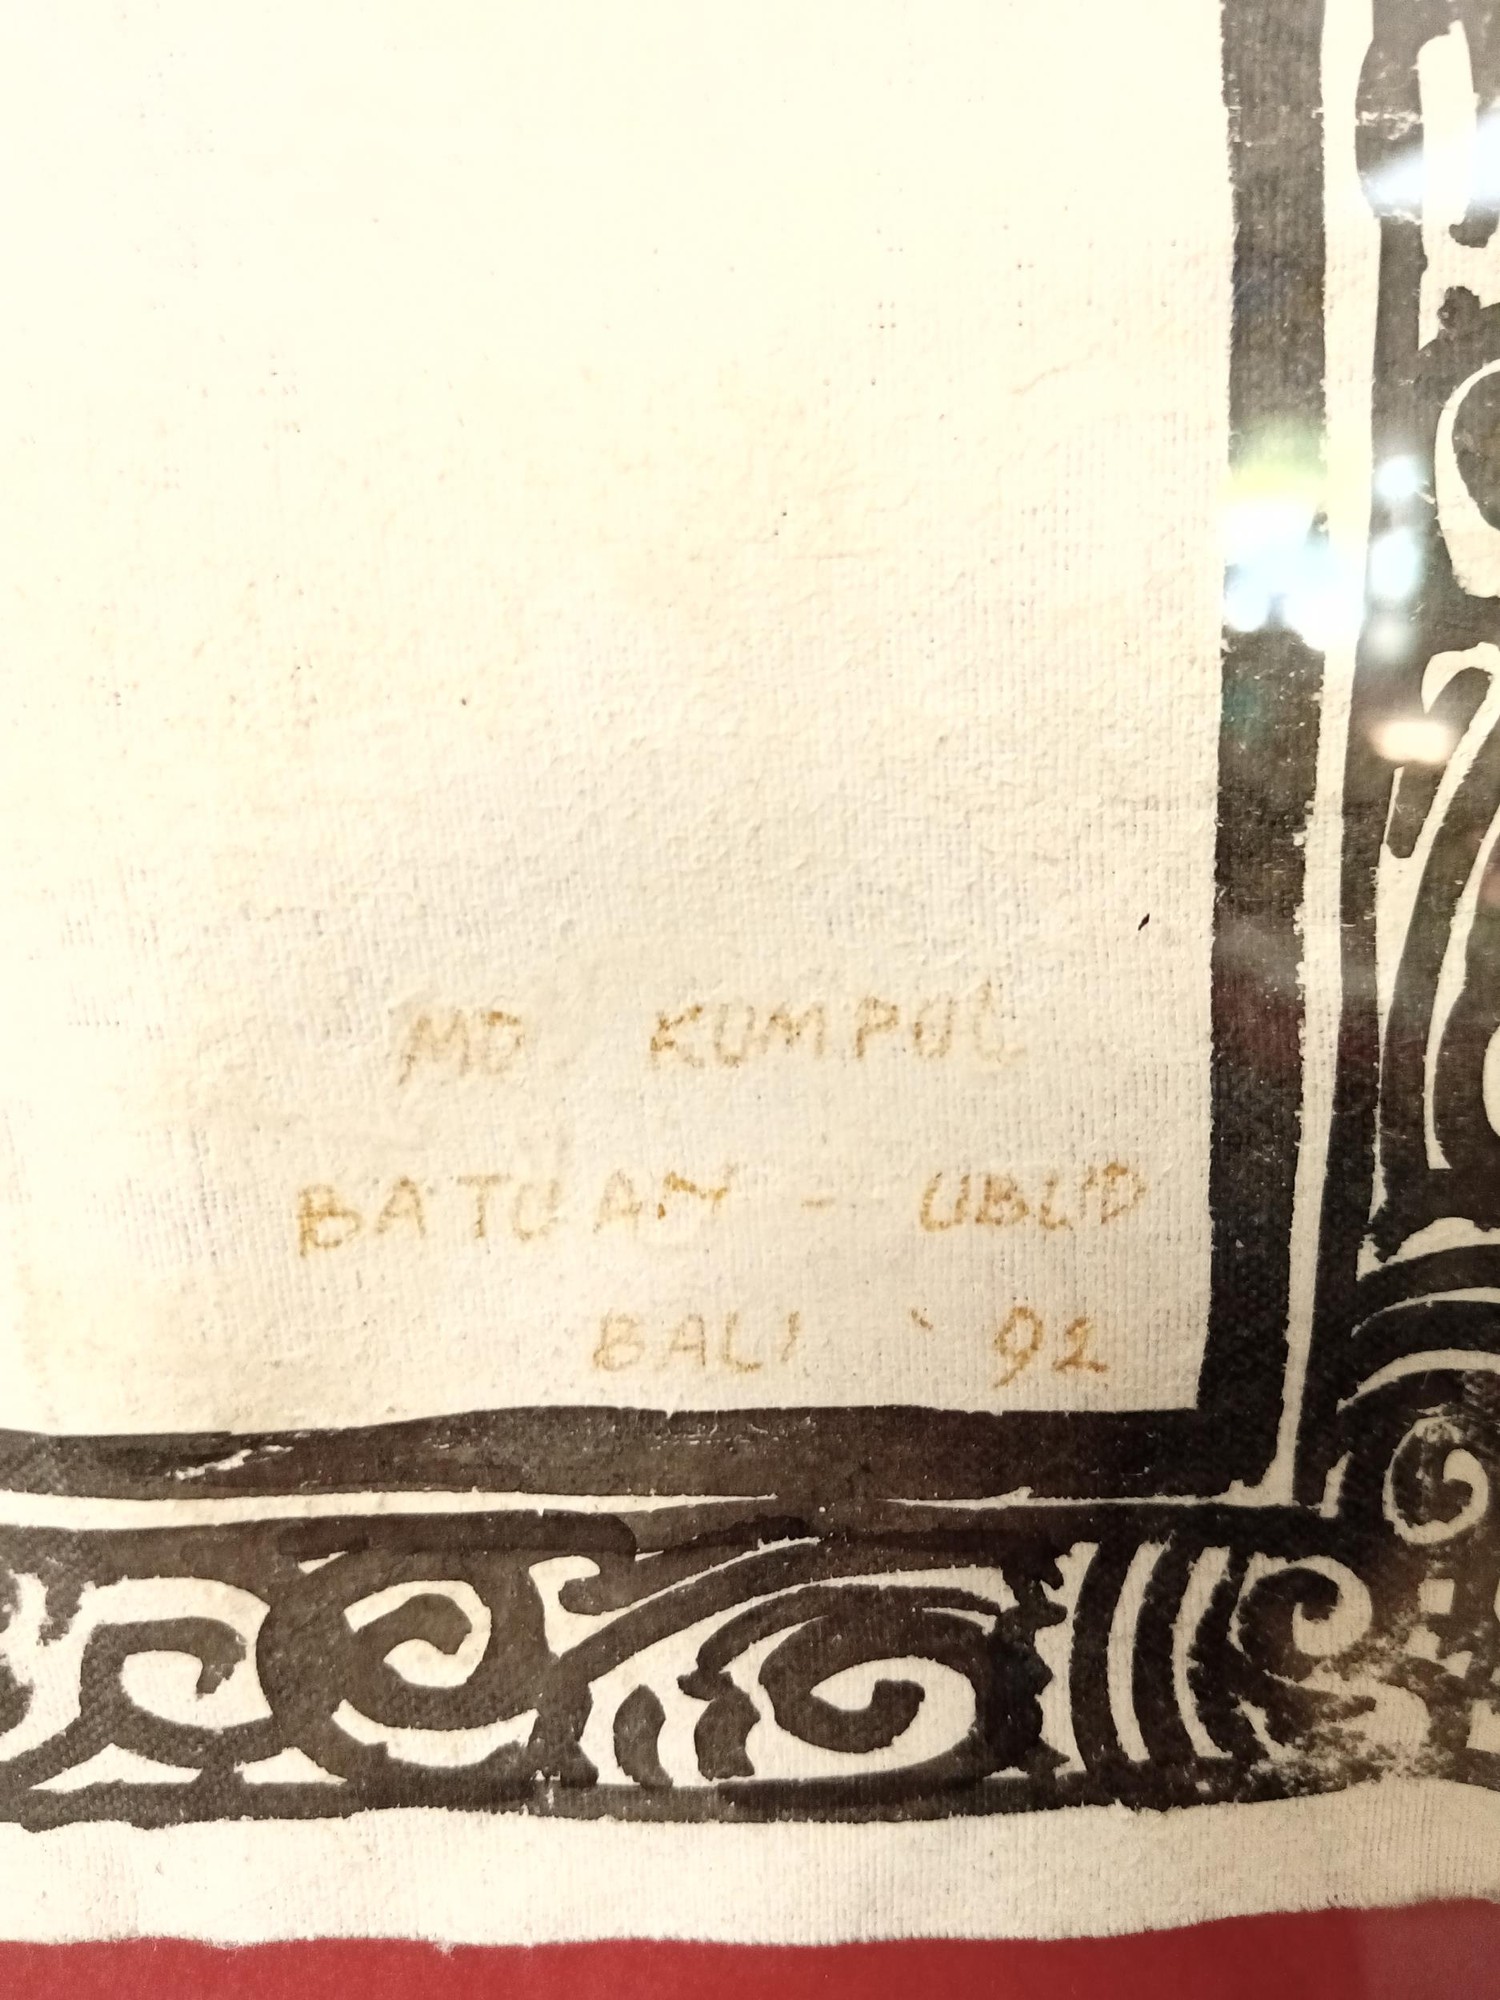 MD KUMPUL
BATUAN - UBUD
BALI '92